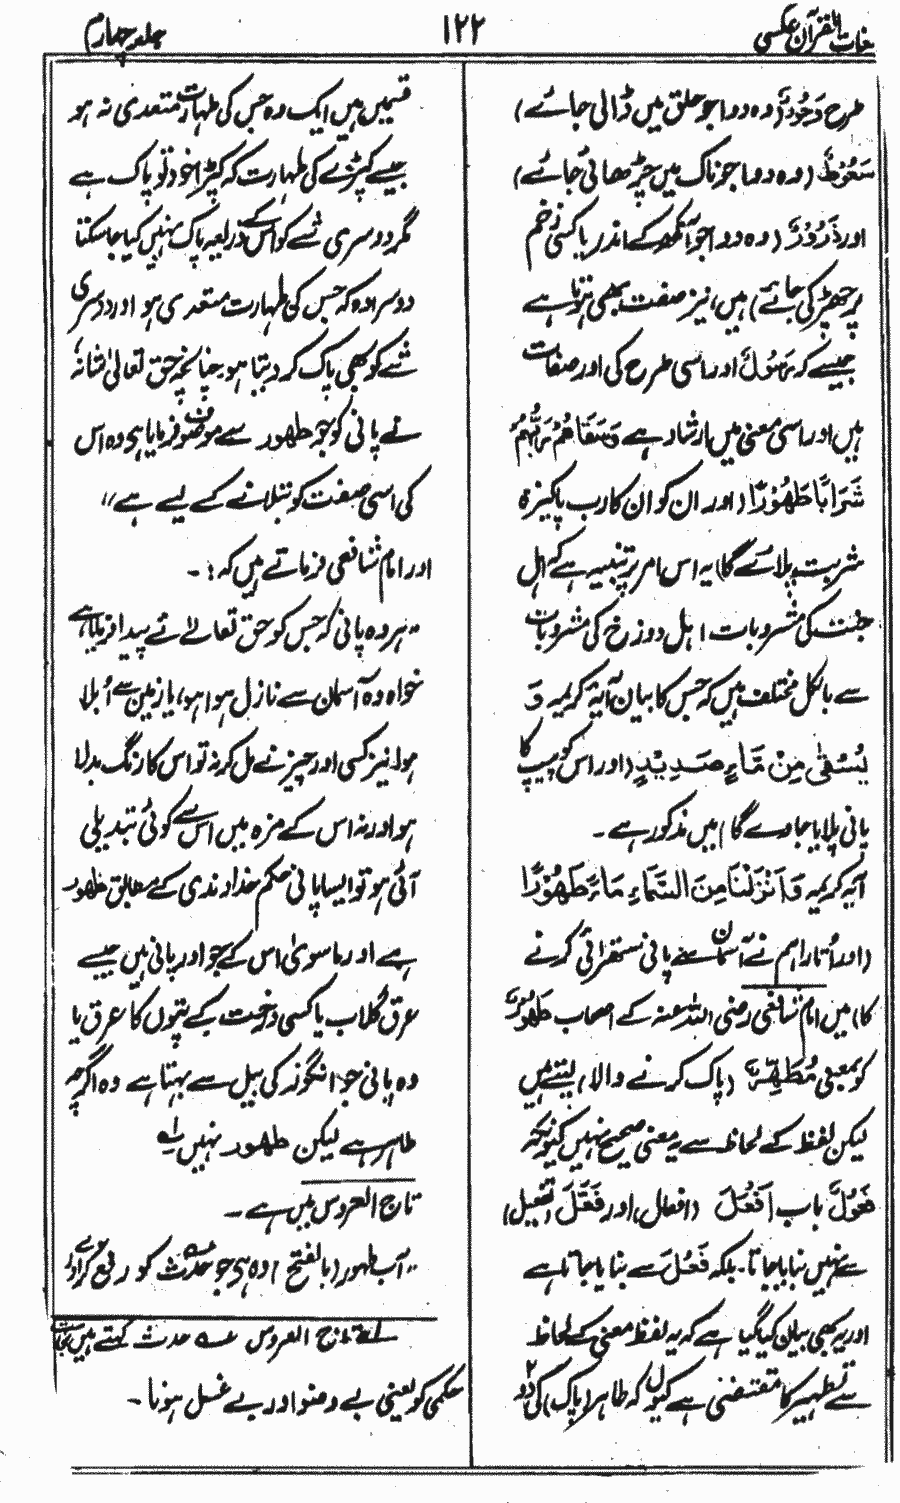 لغات القرآن عکسی ۱۲۲ جلد چہارم
طرح وَجُوْرٌ (وہ دوا جو حلق میں ڈالی جائے)
سَعُوْطٌ (وہ دوا جو ناک میں چڑھائی جائے)
اور ذَرُوْرٌ (وہ دوا جو آنکھ کے اندر یا کسی زخم
پر چھڑکی جائے) ہیں، نیز صفت بھی ہوتا ہے
جیسے کہ رَسُوْلٌ اور اسی طرح کی اور صفات
ہیں اور اسی معنی میں ارشاد ہے وَسَقَاهُمْ رَبُّهُمْ
شَرَابًا طَهُوْرًا (اور ان کو ان کا رب پاکیزہ
شربت پلائے گا) یہ اس امر پر تنبیہ ہے کہ اہل
جنت کی مشروبات، اہل دوزخ کی مشروبات
سے بالکل مختلف ہیں کہ جس کا بیان آیۂ کریمہ وَ
يُسْقٰى مِنْ مَّآءٍ صَدِيْدٍ (اور اس کو پیپ کا
پانی پلایا جاوے گا) میں مذکور ہے۔
آیۂ کریمہ وَاَنْزَلْنَا مِنَ السَّمَآءِ مَآءً طَهُوْرًا
(اور اُتارا ہم نے آسمان سے پانی ستھرائی کرنے
کا) میں امام شافعی رضی اللہ عنہ کے اصحاب طَهُوْرٌ
کو بمعنی مُطَهِّرٌ (پاک کرنے والا) لیتے ہیں
لیکن لفظ کے لحاظ سے یہ معنی صحیح نہیں کیونکہ
فَعُوْلٌ باب اَفْعَلَ (افعال) اور فَعَّلَ (تفعیل)
سے نہیں بنایا جاتا۔ بلکہ فَعُلَ سے بنایا جاتا ہے
اور یہ بھی بیان کیا گیا ہے کہ یہ لفظ معنی کے لحاظ
سے تطہیر کا مقتضی ہے کیوں کہ طاہر (پاک) کی دو
قسمیں ہیں ایک وہ جس کی طہارت متعدی نہ ہو
جیسے کپڑے کی طہارت کہ کپڑا خود تو پاک ہے
مگر دوسری شے کو اس کے ذریعہ پاک نہیں کیا جا سکتا
دوسرا وہ کہ جس کی طہارت متعدی ہو اور دوسری
شے کو بھی پاک کر دیتا ہو۔ چنانچہ حق تعالیٰ شانہ
نے پانی کو جو طهور سے موصوف فرمایا ہے وہ اس
کی اسی صفت کو بتلانے کے لیے ہے"
اور امام شافعی فرماتے ہیں کہ:۔
"ہر وہ پانی کہ جس کو حق تعالےٰ نے پیدا فرمایا ہے
خواہ وہ آسمان سے نازل ہوا ہو، یا زمین سے اُبلا
ہو، نیز کسی اور چیز نے مل کر نہ تو اس کا رنگ بدلا
ہو اور نہ اس کے مزہ میں اس سے کوئی تبدیلی
آئی ہو تو ایسا پانی حکم خداوندی کے مطابق طهور
ہے اور ما سویٰ اس کے جو اور پانی ہیں جیسے
عرق گلاب یا کسی درخت کے پتوں کا عرق یا
وہ پانی جو انگور کی بیل سے بہتا ہے وہ اگرچہ
طاہر ہے لیکن طهور نہیں لہ
تاج العروس میں ہے۔
"آب طهور (بالفتح) وہ ہے جو حدث کو رفع کر دے
لہ تاج العروس عہ حدث کہتے ہیں نجاست
حکمی کو یعنی بے وضو اور بے غسل ہونا۔